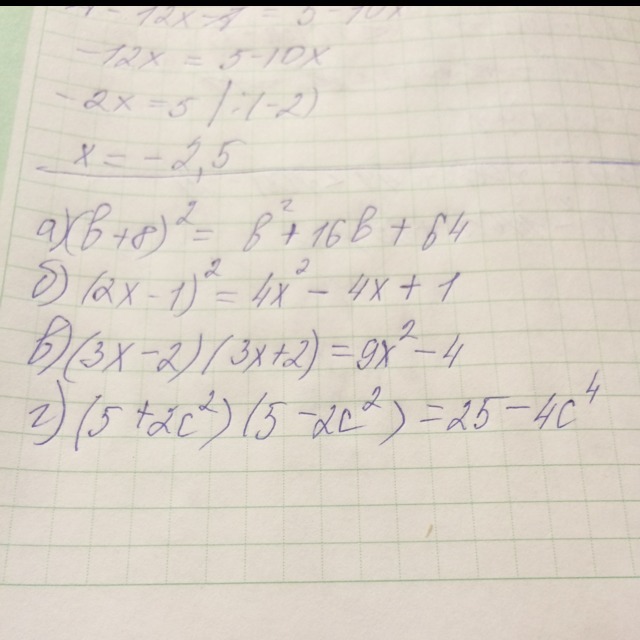 -12x = 5-10x
-2x = 5 | :(-2)
x = -2,5
а) (b+8)² = b² + 16b + 64
б) (2x-1)² = 4x² - 4x + 1
в) (3x-2)(3x+2) = 9x² - 4
г) (5+2c²)(5-2c²) = 25-4c⁴